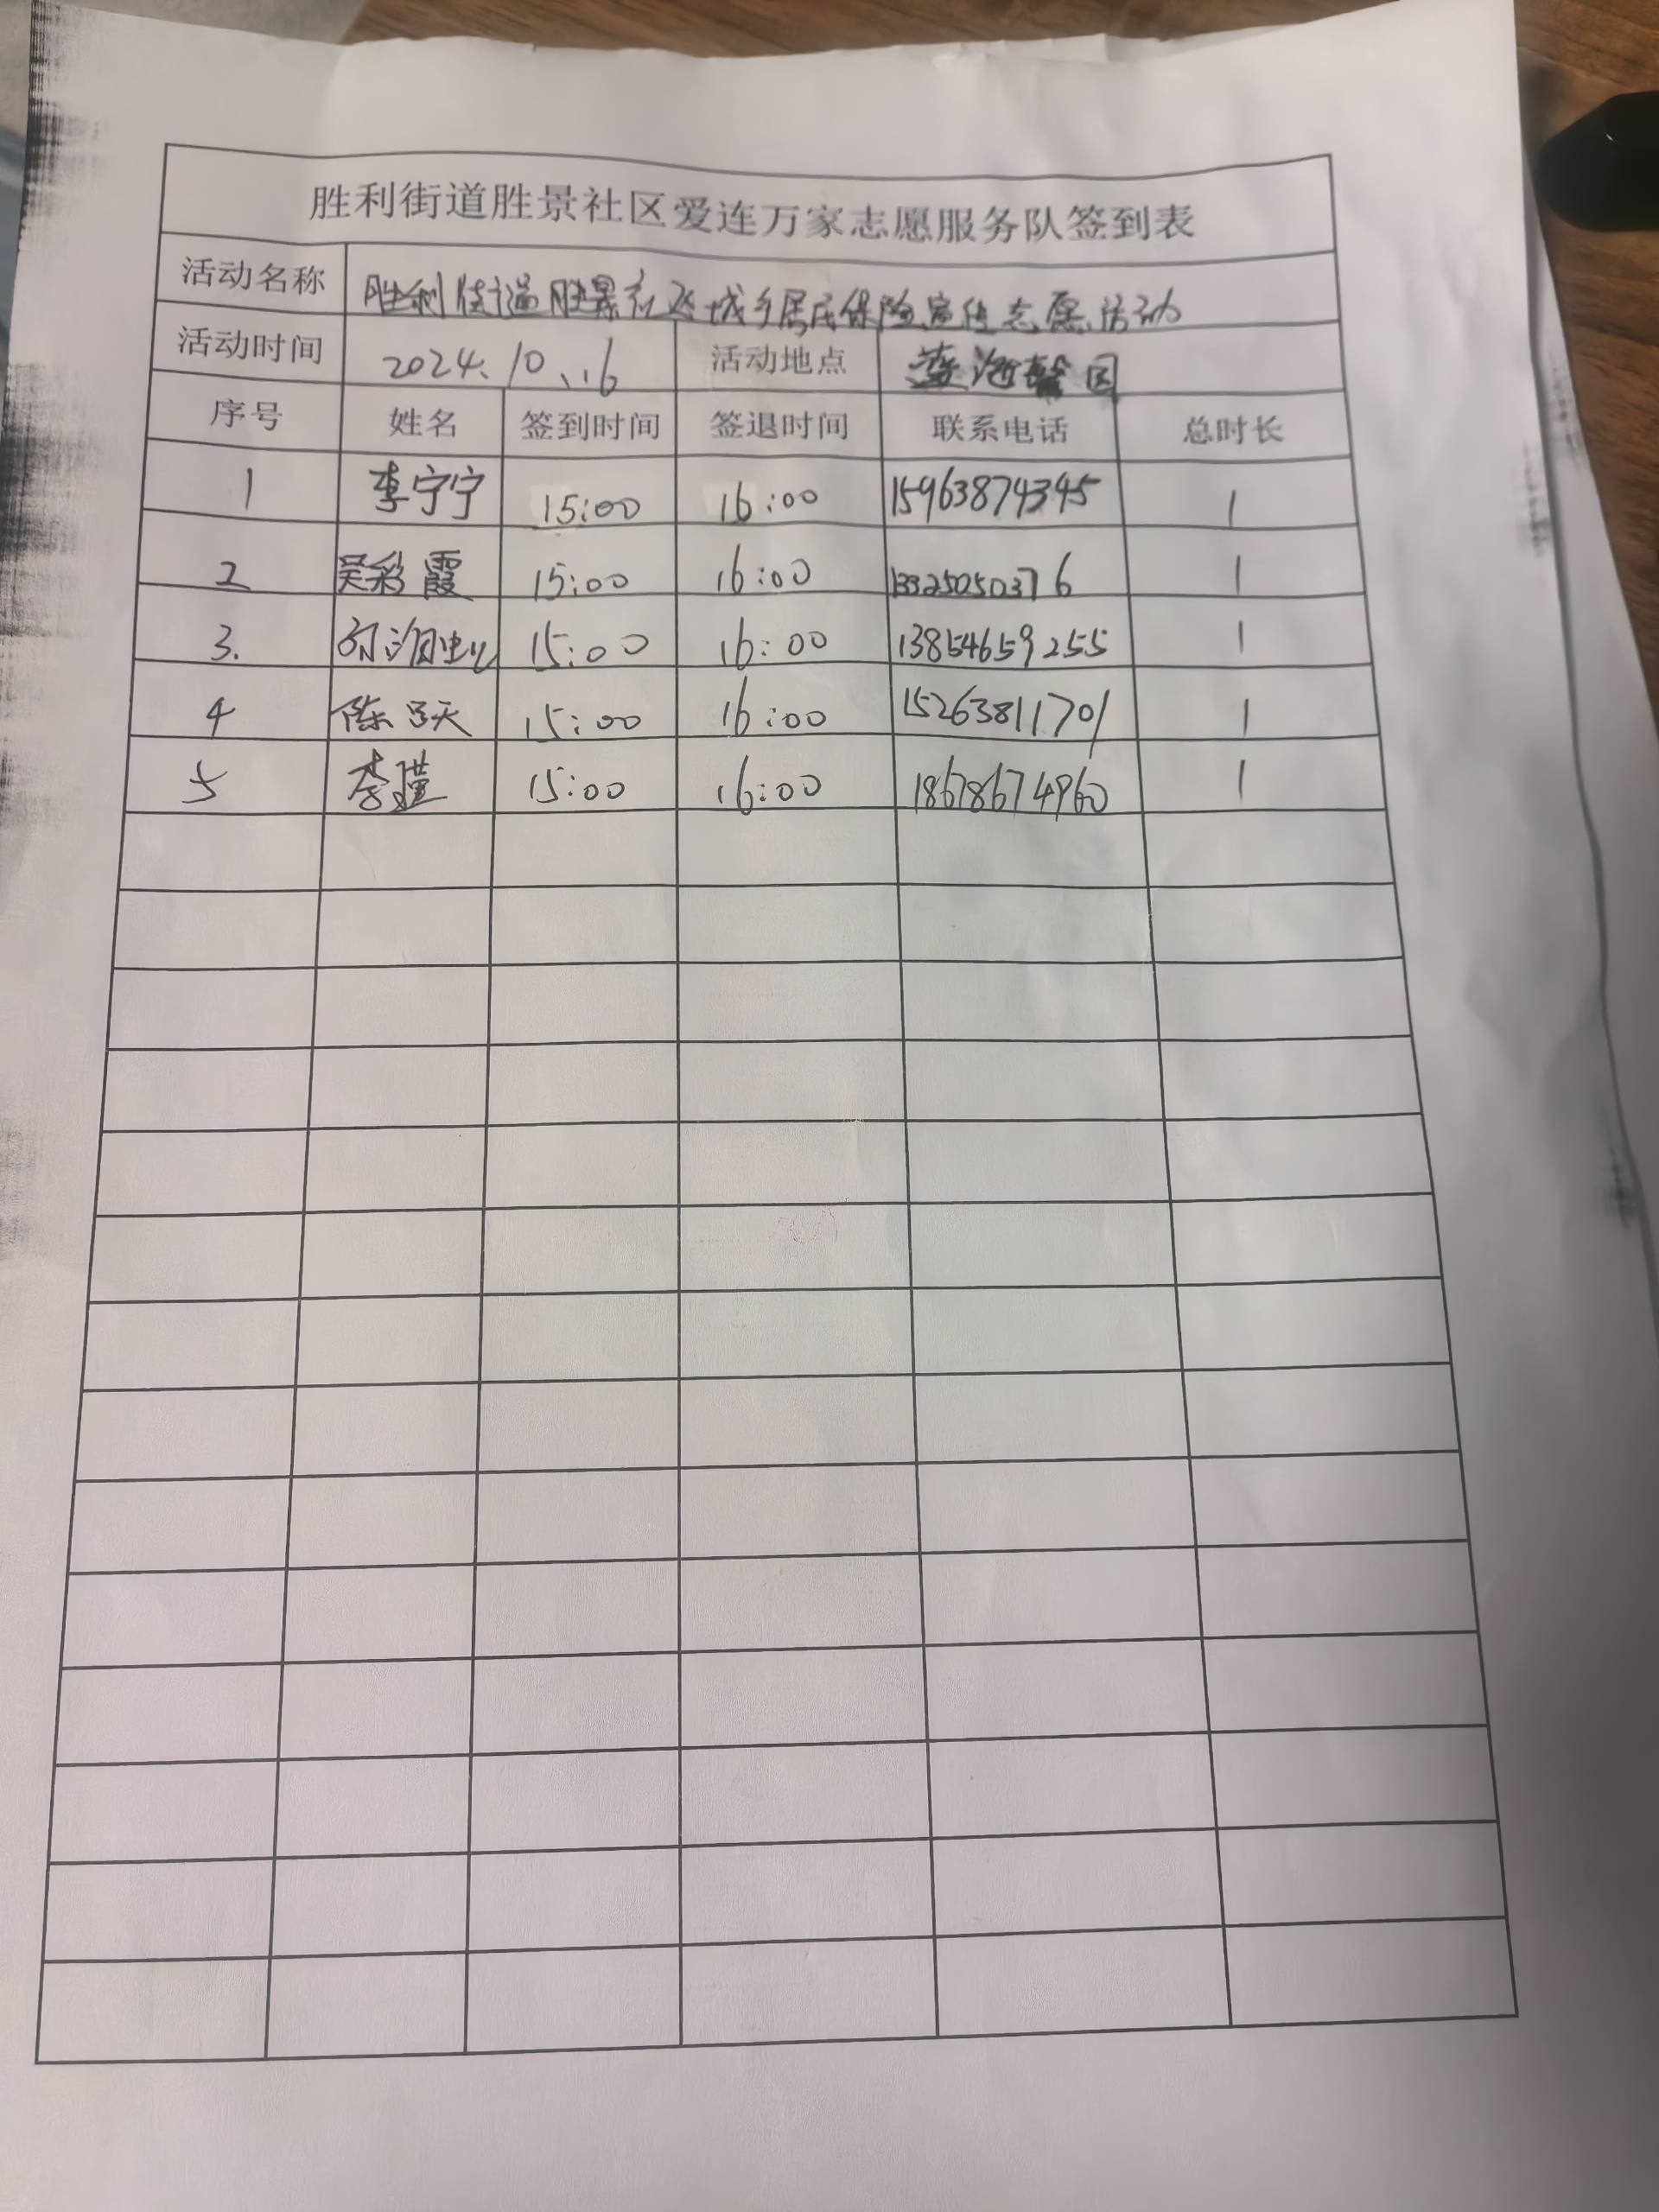 胜利街道胜景社区爱连万家志愿服务队签到表
活动名称 胜利街道胜景社区城乡居民保险宣传志愿活动
活动时间 2024.10.16 活动地点 园
序号 姓名 签到时间 签退时间 联系电话 总时长
1 李宁宁 15:00 16:00 15963874345 1
2 吴彩霞 15:00 16:00 13325050376 1
3. 15:00 16:00 13854659255 1
4 陈 15:00 16:00 15263811701 1
5 李瑾 15:00 16:00 18678674960 1